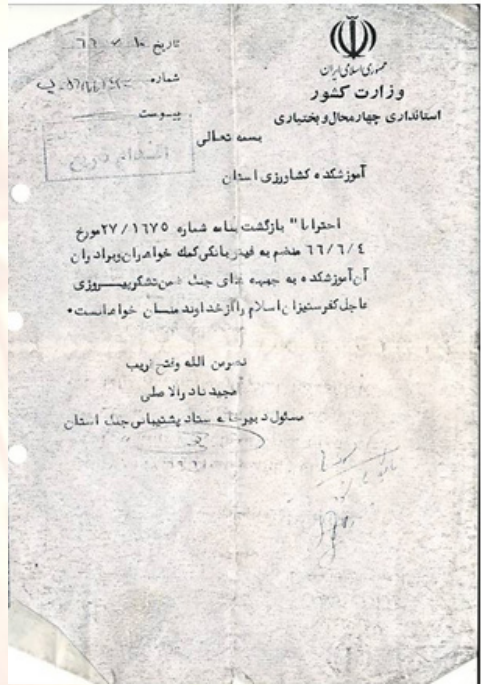 جمهوری اسلامی ایران
وزارت کشور
استانداری چهارمحال و بختیاری
تاریخ
شماره
پیوست
بسمه تعالی
اقدام فوری
آموزشکده کشاورزی استان
احتراما" بازگشت بنامه شماره ۲۷/۱۶۷۵ مورخ
۶۶/۶/۴ منضم به فیش بانکی کمک خواهران و برادران
آن آموزشکده به جبهه های جنگ ضمن تشکر پیــروزی
عاجل کفرستیزان اسلام را از خداوند منـان خواهانست.
نصر من الله وفتح قریب
مجید نادرالاصلی
مسئول دبیرخانه ستاد پشتیبانی جنگ استان